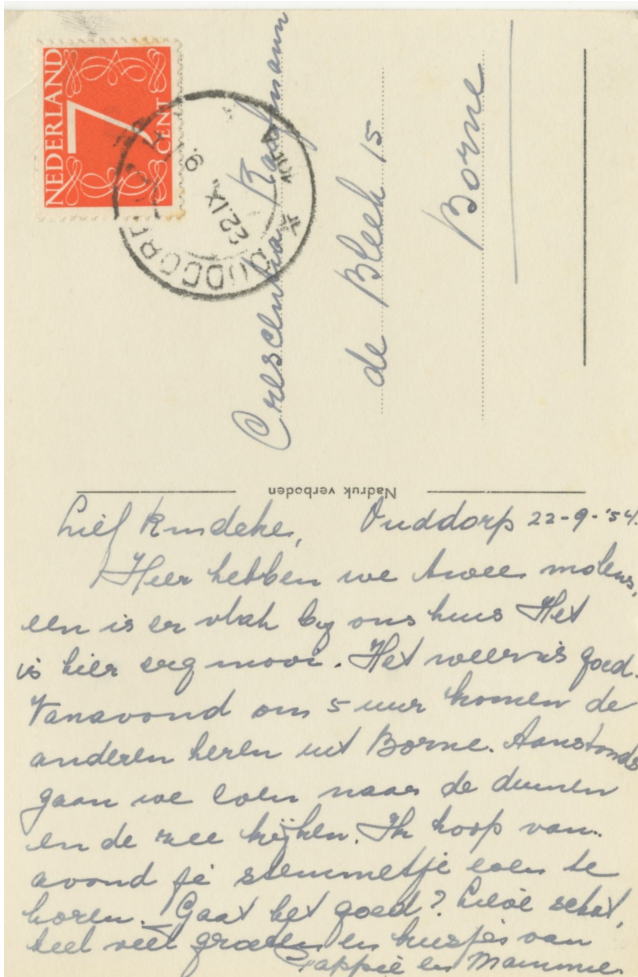 NEDERLAND
7
CENT
OUDDORP
22.IX
Crescentia Kaufmann
de Bleek 15
Borne
Nadruk verboden
Lief kindeke, Ouddorp 22-9-'54.
Hier hebben we twee molens,
een is er vlak bij ons huis Het
is hier erg mooi. Het weer is goed.
Vanavond om 5 uur komen de
anderen heren uit Borne. Aanstonds
gaan we even naar de duinen
en de zee kijken. Ik hoop van-
avond je stemmetje even te
horen. Gaat het goed? Lieve schat,
heel veel groeten en kusjes van
Pappie en Mammie